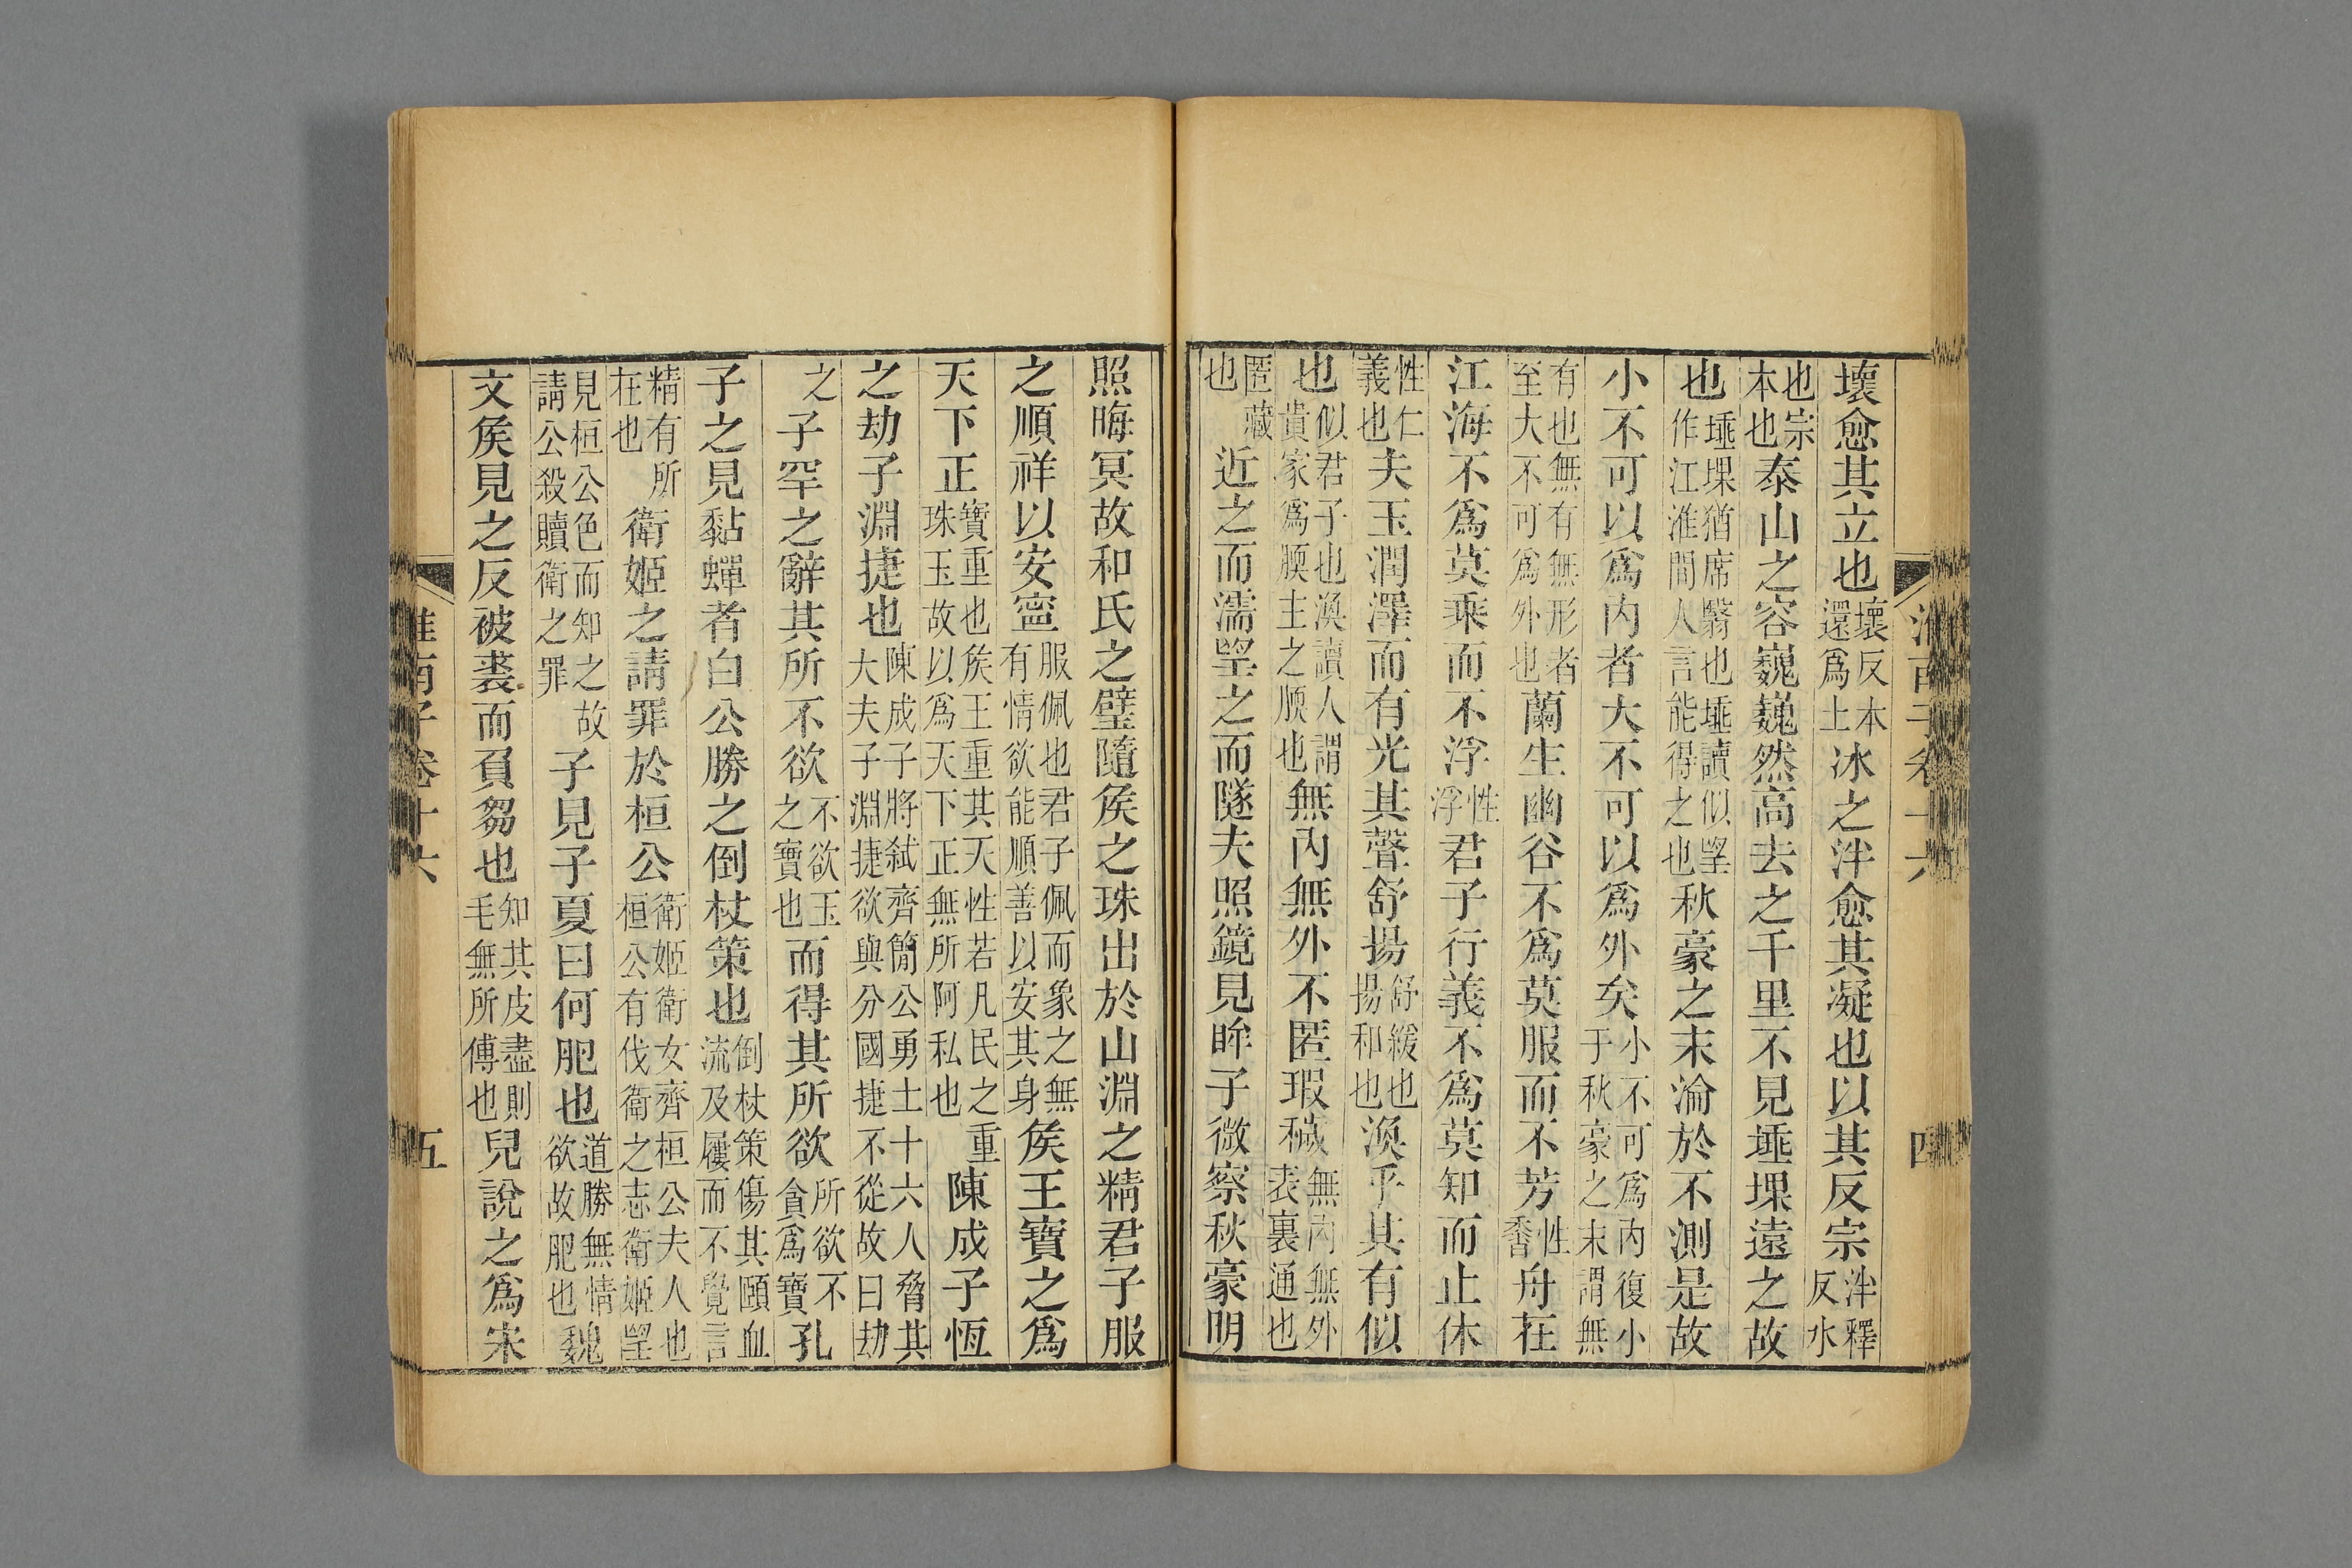 壞愈其立也壞反本還爲土冰之泮愈其凝也以其反宗泮釋反水
也宗本也泰山之容巍巍然高去之千里不見埵堁遠之故
也埵堁猶席翳也埵讀似望作江淮間人言能得之也秋豪之末淪於不測是故
小不可以爲内者大不可以爲外矣小不可爲内復小于秋豪之末謂無
有也無有無形者至大不可爲外也蘭生幽谷不爲莫服而不芳性香舟在
江海不爲莫乗而不浮性浮君子行義不爲莫知而止休
性仁義也夫玉潤澤而有光其聲舒揚舒緩也揚和也渙乎其有似
也似君子也渙讀人謂貴家爲腝主之腝也無内無外不匿瑕穢無内無外表裏通也
匿藏也近之而濡望之而隧夫照鏡見眸子微察秋豪明
照晦冥故和氏之璧隨矦之珠出於山淵之精君子服
之順祥以安寍服佩也君子佩而象之無有情欲能順善以安其身矦王寶之爲
天下正寶重也矦王重其天性若凡民之重珠玉故以爲天下正無所阿私也陳成子恆
之劫子淵捷也陳成子將弑齊簡公勇士十六人脅其大夫子淵捷欲與分國捷不從故曰劫
之子罕之辭其所不欲不欲玉之寶也而得其所欲所欲不貪爲寶孔
子之見黏蟬者白公勝之倒杖策也倒杖策傷其頤血流及屨而不覺言
精有所在也衛姬之請罪於桓公衛姬衛女齊桓公夫人也桓公有伐衛之志衛姬望
見桓公色而知之故請公殺贖衛之罪子見子夏曰何肥也道勝無情欲故肥也魏
文矦見之反被裘而負芻也知其皮盡則毛無所傅也兒說之爲宋
淮南子卷十六
五